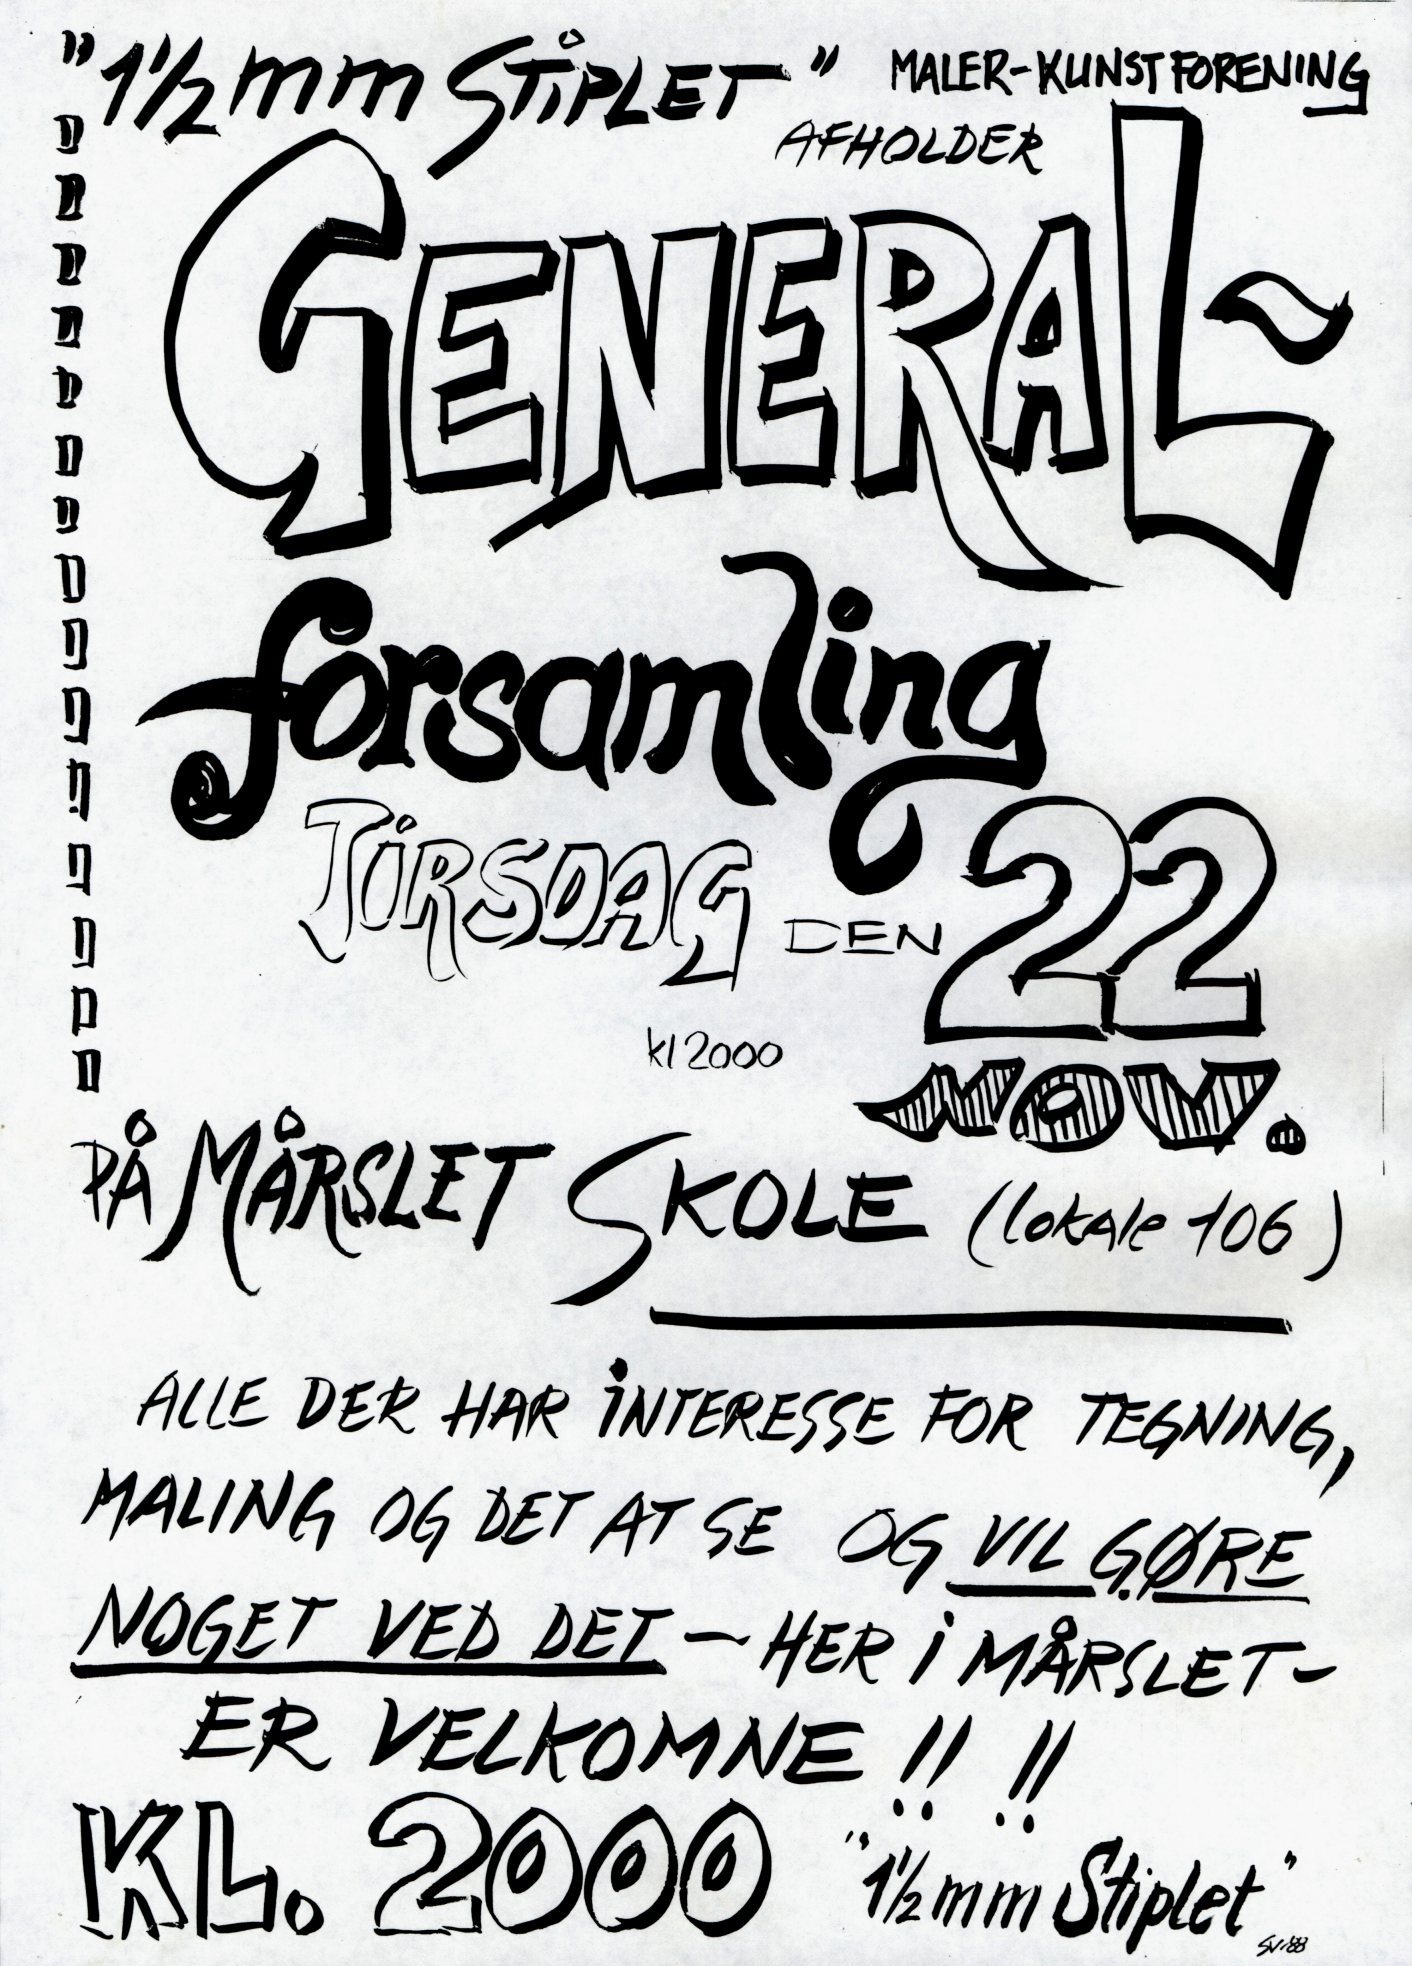 "1½ mm STiPLET" MALER-KUNSTFORENING
AFHOLDER
GENERAL-
forsamling
TiRSDAG DEN 22
kl 2000
NOV.
PÅ MÅRSLET SKOLE (lokale 106)
ALLE DER HAR iNTERESSE FOR TEGNING,
MALING OG DET AT SE OG VIL GØRE
NOGET VED DET - HER i MÅRSLET-
ER VELKOMNE !! !!
KL. 2000 "1½ mm Stiplet"
SV 88